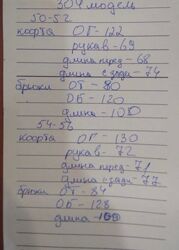 304 модель
50-52
кофта ОГ-122
рукав-69
длина перед-68
длина сзади-74
брюки ОТ-80
ОБ-120
длина-100
54-56
кофта ОГ-130
рукав-72
длина перед-71
длина сзади-77
брюки ОТ-84
ОБ-128
длина-